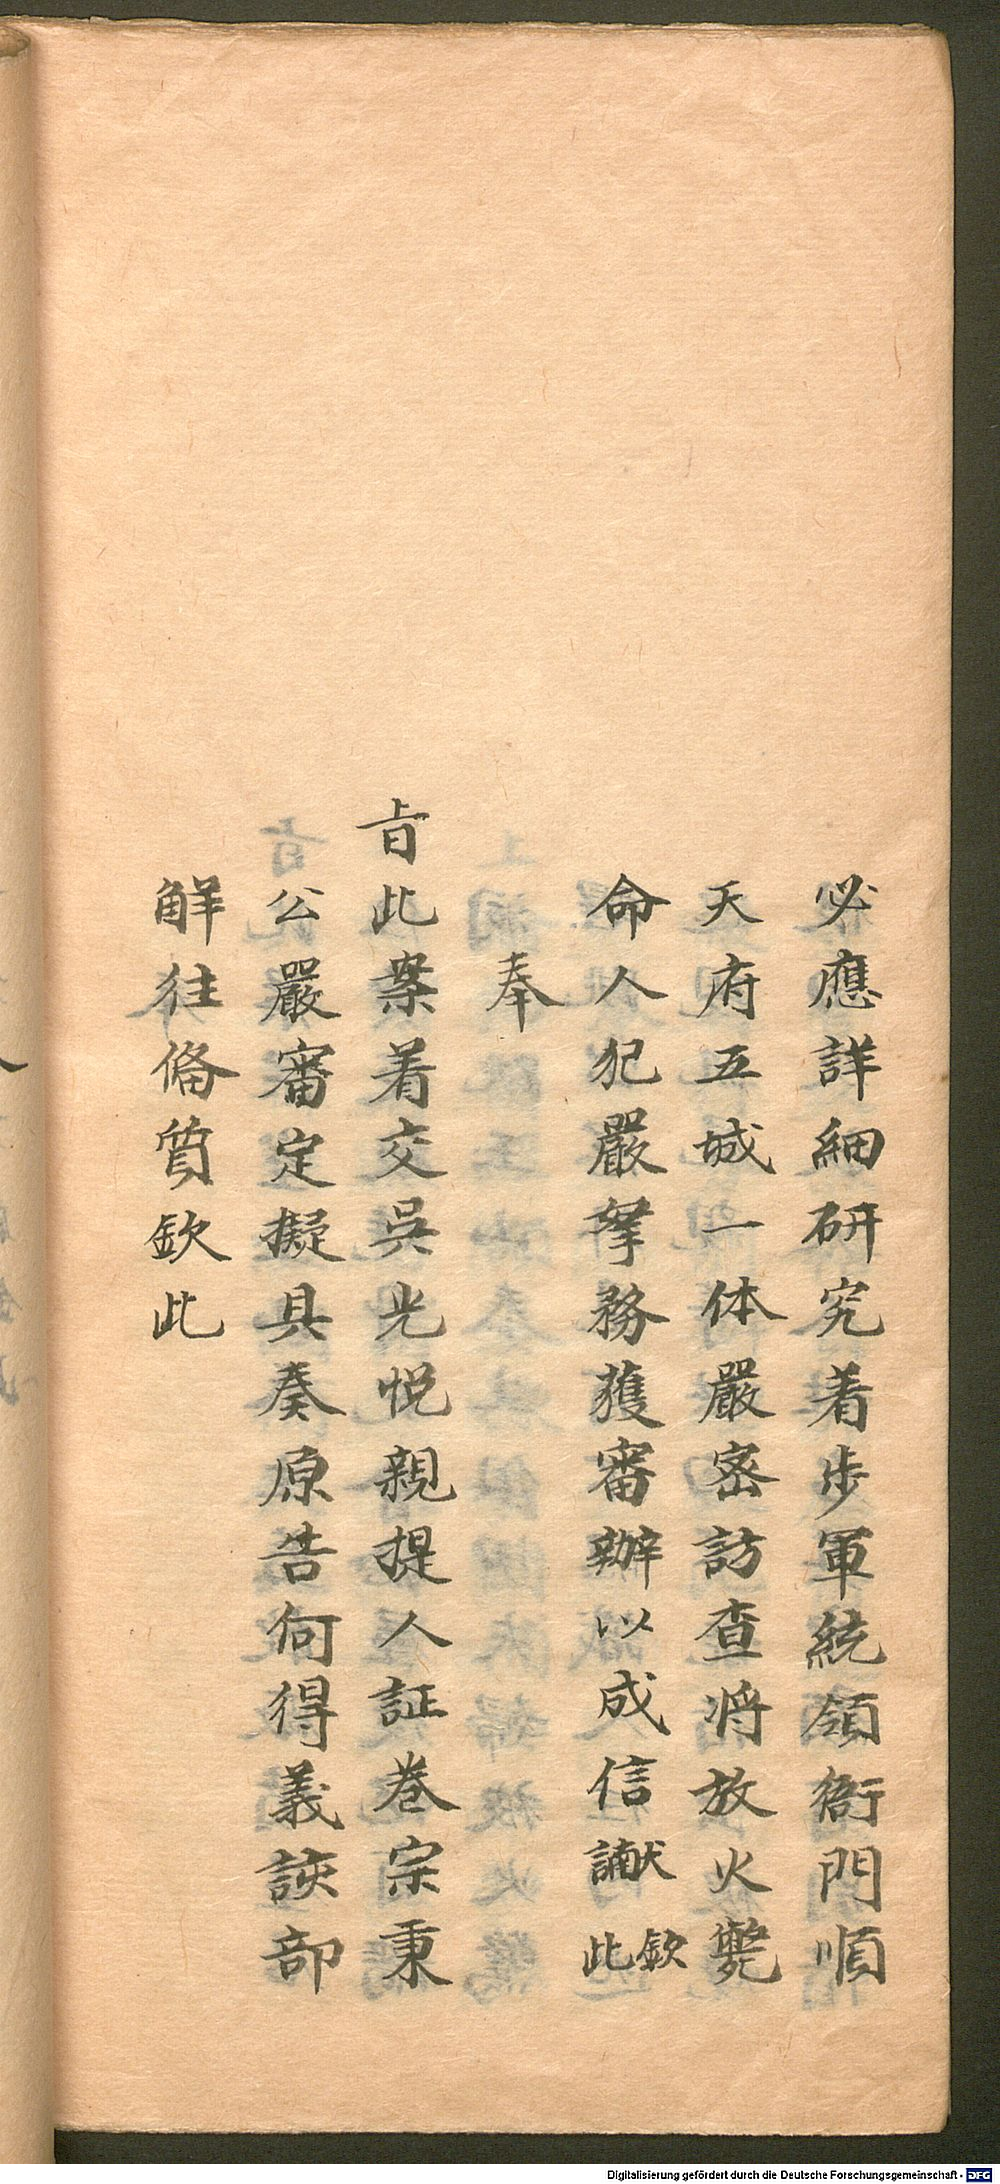 必應詳細研究着步軍統領衙門順
天府五城一体嚴密訪查將放火斃
命人犯嚴拏務獲審辦以成信讞欽此
奉
旨此案着交吳光悅親提人証卷宗秉
公嚴審定擬具奏原告何得義該部
解往備質欽此
Digitalisierung gefördert durch die Deutsche Forschungsgemeinschaft - DFG